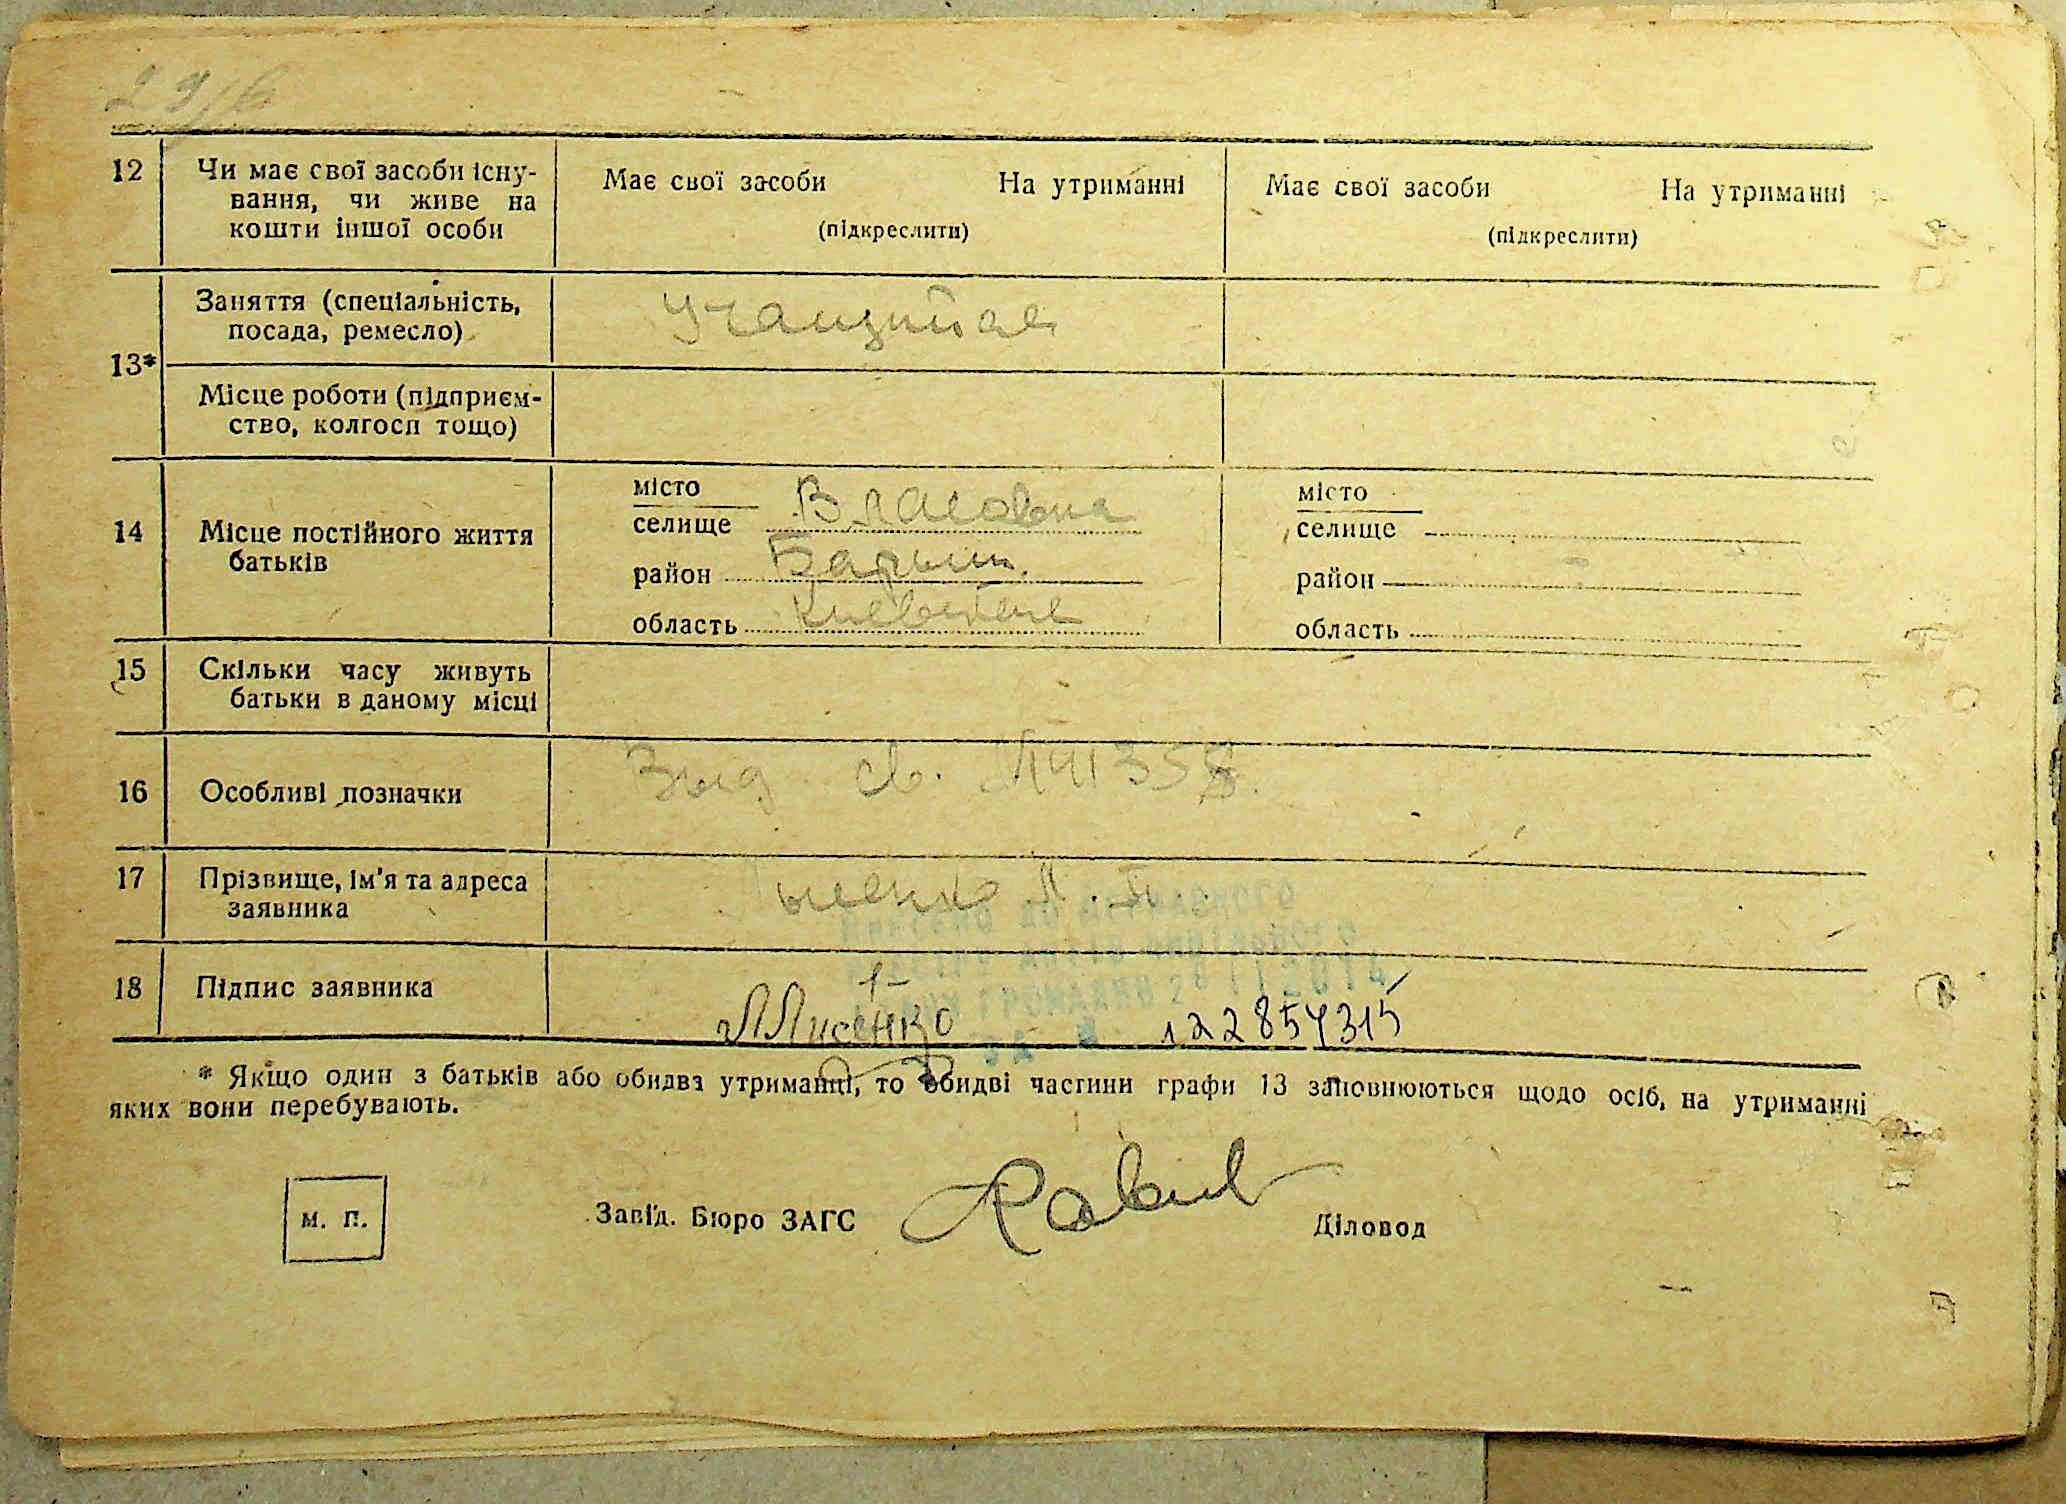 29/6
12 Чи має свої засоби існу-
вання, чи живе на
кошти іншої особи
Має свої засоби На утриманні
(підкреслити)
Має свої засоби На утриманні
(підкреслити)
13*
Заняття (спеціальність,
посада, ремесло)
Учащийся
Місце роботи (підприєм-
ство, колгосп тощо)
14 Місце постійного життя
батьків
місто
селище Власовка
район Барыш.
область Киевская
місто
селище
район
область
15 Скільки часу живуть
батьки в даному місці
16 Особливі позначки
св.
17 Прізвище, ім'я та адреса
заявника
18 Підпис заявника
Лисенко 122857315
ВНЕСЕНО ДО ДЕРЖАВНОГО
РЕЄСТРУ АКТІВ ЦИВІЛЬНОГО
СТАНУ ГРОМАДЯН 28 11 2014
ЗА №
* Якщо один з батьків або обидва утриманці, то обидві частини графи 13 заповнюються щодо осіб, на утриманні
яких вони перебувають.
М. П.
Завід. Бюро ЗАГС
Діловод